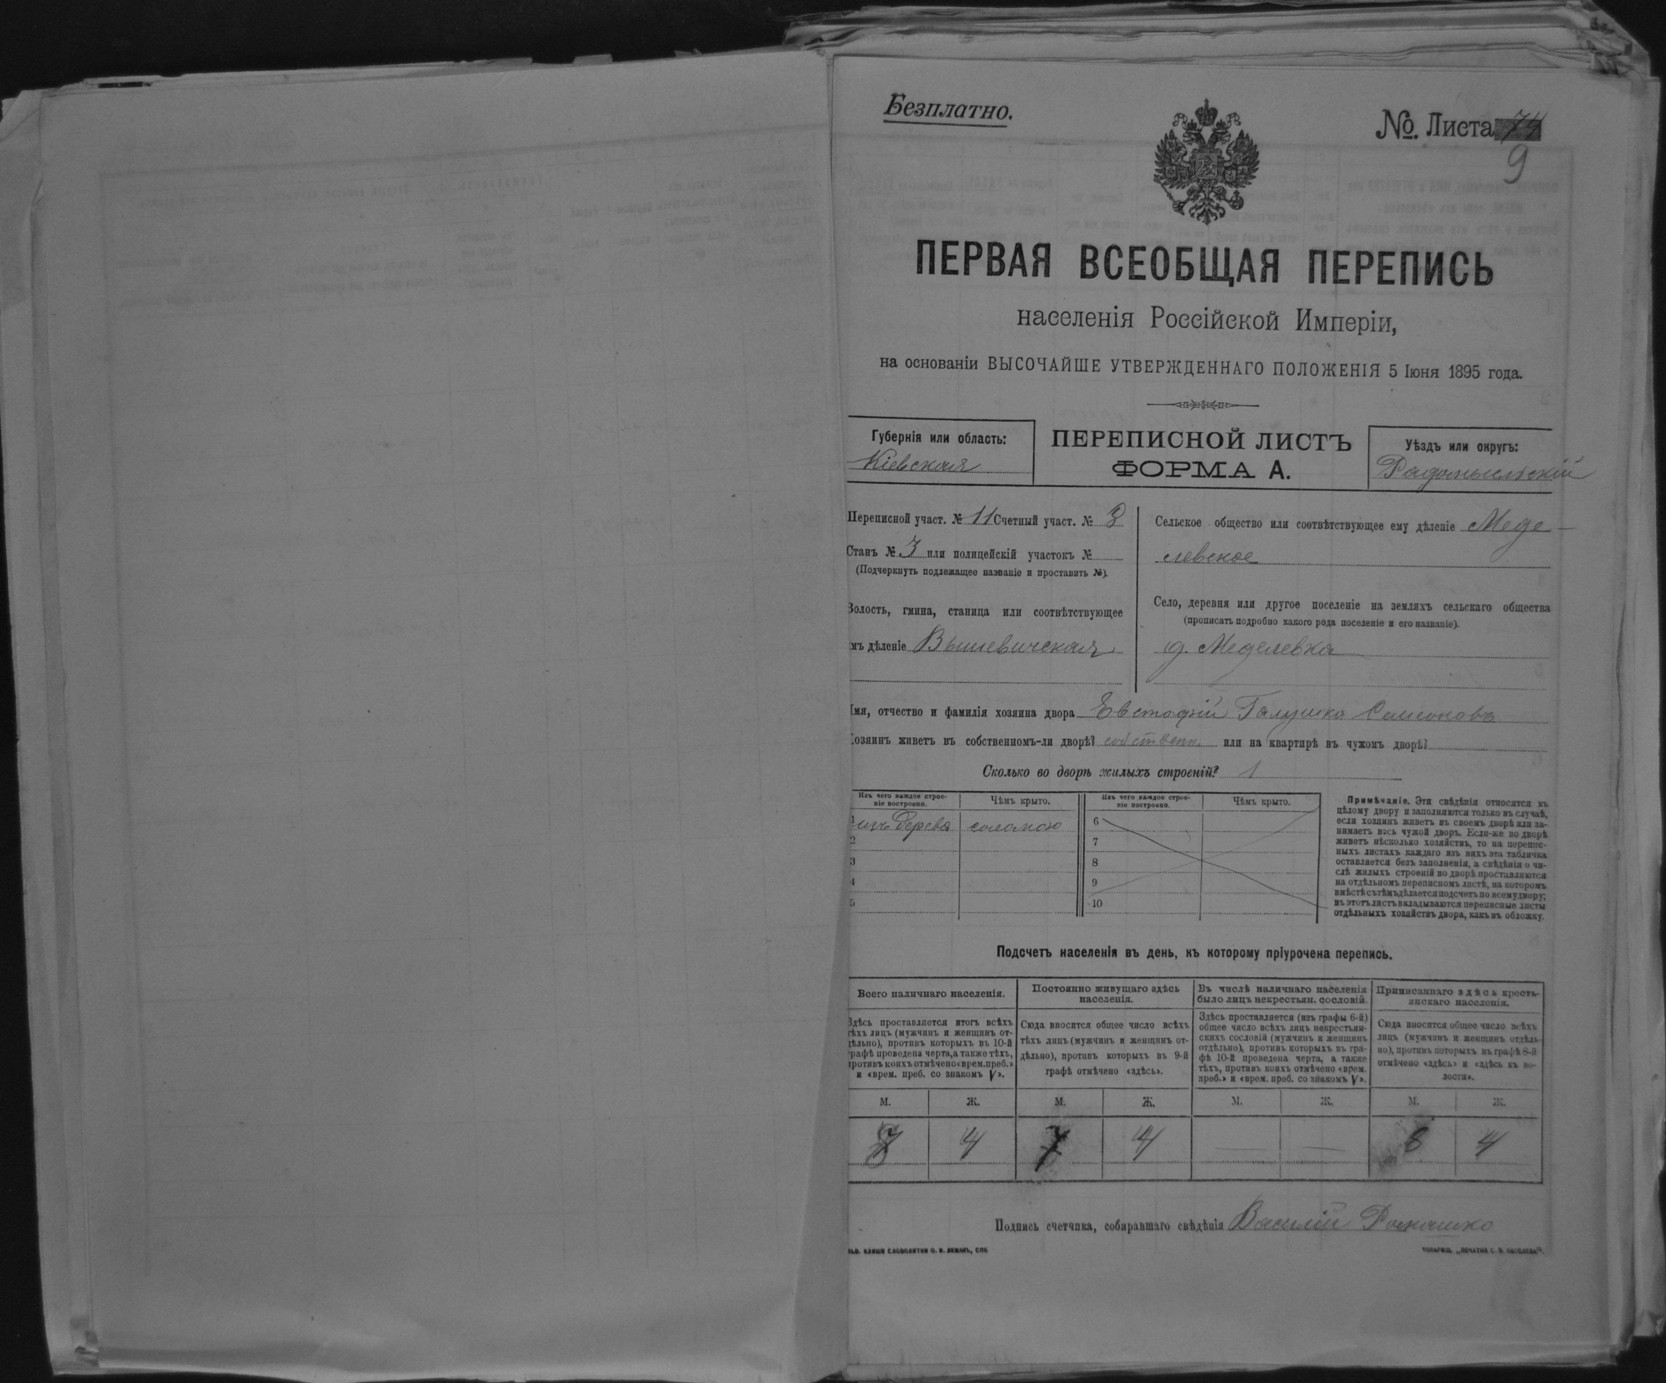 Безплатно.
№. Листа 74
9
ПЕРВАЯ ВСЕОБЩАЯ ПЕРЕПИСЬ
населенія Россійской Имперіи,
на основаніи ВЫСОЧАЙШЕ УТВЕРЖДЕННАГО ПОЛОЖЕНІЯ 5 Іюня 1895 года.
Губернія или область:
Кіевская
ПЕРЕПИСНОЙ ЛИСТЪ
ФОРМА А.
Уѣздъ или округъ:
Радомысльскій
Переписной участ. № 11 Счетный участ. № 3
Станъ № 3 или полицейскій участокъ №
(Подчеркнуть подлежащее названіе и проставить №).
Волость, гмина, станица или соотвѣтствующее
имъ дѣленіе Вышевичская
Сельское общество или соотвѣтствующее ему дѣленіе Меде-
левское
Село, деревня или другое поселеніе на земляхъ сельскаго общества
(прописать подробно какого рода поселеніе и его названіе).
д. Меделевка
Имя, отчество и фамилія хозяина двора Евстафій Галушка Самсоновъ
Хозяинъ живетъ въ собственномъ-ли дворѣ? собствен. или на квартирѣ въ чужомъ дворѣ?
Сколько во дворѣ жилыхъ строеній? 1
Изъ чего каждое строе-
ніе построено.
Чѣмъ крыто.
Изъ чего каждое строе-
ніе построено.
Чѣмъ крыто.
1 изъ дерева соломою
2
3
4
5
6
7
8
9
10
Примѣчаніе. Эти свѣдѣнія относятся къ
цѣлому двору и заполняются только въ случаѣ,
если хозяинъ живетъ въ своемъ дворѣ или за-
нимаетъ весь чужой дворъ. Если-же во дворѣ
живетъ нѣсколько хозяйствъ, то на перепис-
ныхъ листахъ каждаго изъ нихъ эта табличка
оставляется безъ заполненія, а свѣдѣнія о чи-
слѣ жилыхъ строеній во дворѣ проставляются
на отдѣльномъ переписномъ листѣ, на которомъ
вмѣстѣ съ тѣмъ дѣлается подсчетъ по всему двору;
въ этотъ листъ вкладываются переписные листы
отдѣльныхъ хозяйствъ двора, какъ въ обложку.
Подсчетъ населенія въ день, къ которому пріурочена перепись.
Всего наличнаго населенія.
Здѣсь проставляется итогъ всѣхъ
тѣхъ лицъ (мужчинъ и женщинъ от-
дѣльно), противъ которыхъ въ 10-й
графѣ проведена черта, а также тѣхъ,
противъ коихъ отмѣчено «врем. преб.»
и «врем. преб. со знакомъ V».
Постоянно живущаго здѣсь
населенія.
Сюда вносится общее число всѣхъ
тѣхъ лицъ (мужчинъ и женщинъ от-
дѣльно), противъ которыхъ въ 9-й
графѣ отмѣчено «здѣсь».
Въ числѣ наличнаго населенія
было лицъ некрестьян. сословій.
Здѣсь проставляется (изъ графы 6-й)
общее число всѣхъ лицъ некрестьян-
скихъ сословій (мужчинъ и женщинъ
отдѣльно), противъ которыхъ въ гра-
фѣ 10-й проведена черта, а также
тѣхъ, противъ коихъ отмѣчено «врем.
преб.» и «врем. преб. со знакомъ V».
Приписаннаго здѣсь кресть-
янскаго населенія.
Сюда вносится общее число всѣхъ
лицъ (мужчинъ и женщинъ отдѣль-
но), противъ которыхъ въ графѣ 8-й
отмѣчено «здѣсь» и «здѣсь въ во-
лости».
М. Ж. М. Ж. М. Ж. М. Ж.
4 7 4 — — 4
Подпись счетчика, собиравшаго свѣдѣнія Василій